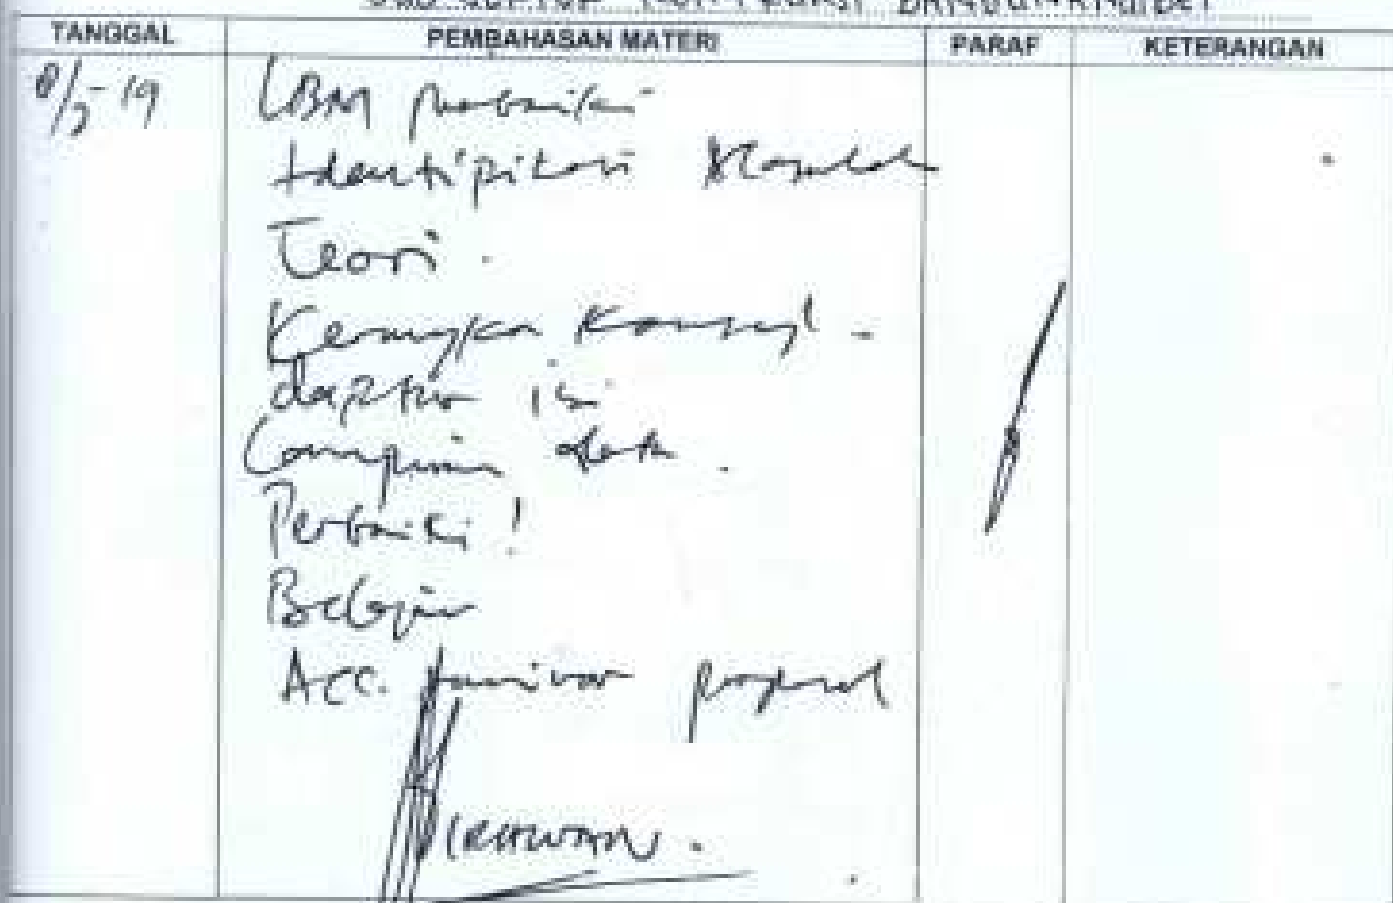 TANGGAL PEMBAHASAN MATERI PARAF KETERANGAN
8/3-19 LBM perbaiki
Identipikasi Masalah
Teori.
Kerangka Konsep -
daptar isi
Lampiran data.
Perbaiki!
Belajar
Acc. seminar proposal
IRHWAN.